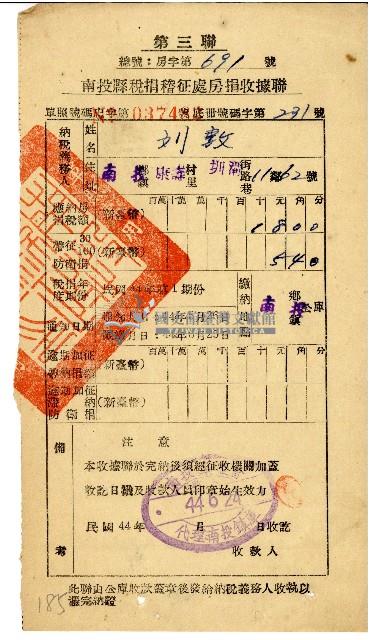 第三聯
總號：房字第691號
南投縣稅捐稽征處房捐收據聯
單照號碼 字第0374 號底冊號碼字第291號
納稅義務人
姓名
刘敦
住址
南投 鄉鎮 村里 街路巷 號
應納房捐稅額
(新臺幣)
百萬十萬萬千百十元角分
1800
帶征30%防衛捐
(新臺幣)
540
稅捐年度期份
民國44年第1期份
繳納地點
南投 鄉鎮公庫
通知日期
逾期加征
(新臺幣)
百萬十萬萬千百十元角分
逾期加征滯納防衛捐
(新臺幣)
國史館臺灣文獻館
備考
注意
本收據聯於完納後須經征收機關加蓋
收訖日機及收款人員印章始生效力
民國44年 月 日收訖
收款人
44.6.24
代理南投鎮庫
此聯由公庫收款蓋章後發給納稅義務人收執以
憑完納證
185